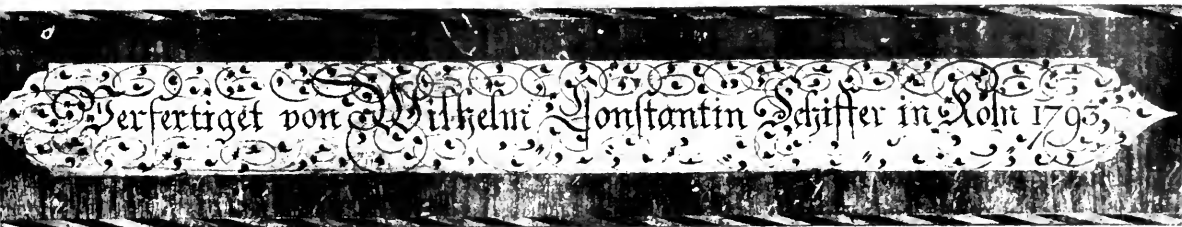 Verfertiget von Wilhelm Constantin Schiffer in Köln 1793,